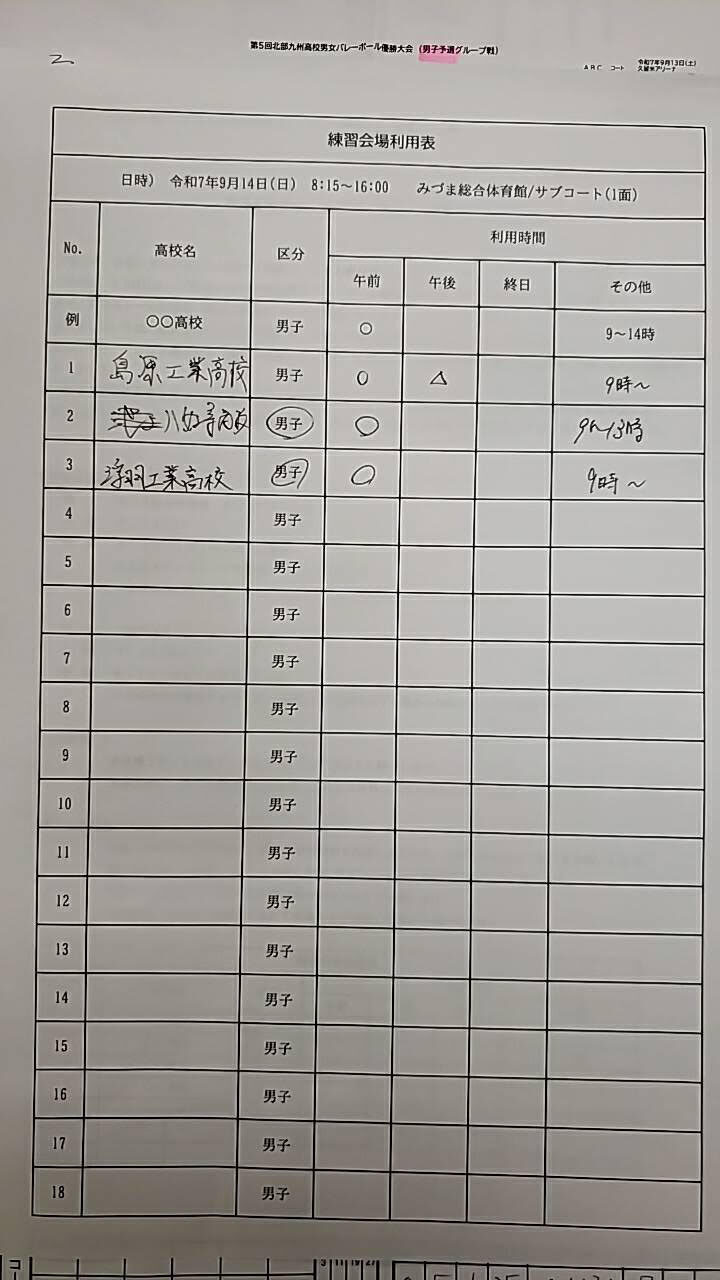 2
第5回北部九州高校男女バレーボール優勝大会 (男子予選グループ戦)
ABC コート 令和7年9月13日(土)
久留米アリーナ
練習会場利用表
日時) 令和7年9月14日(日) 8:15～16:00 みづま総合体育館/サブコート(1面)
No. 高校名 区分 利用時間
午前 午後 終日 その他
例 〇〇高校 男子 ○ 9～14時
1 島原工業高校 男子 ○ △ 9時～
2 男子 ○ 9～13時
3 浮羽工業高校 男子 ○ 9時～
4 男子
5 男子
6 男子
7 男子
8 男子
9 男子
10 男子
11 男子
12 男子
13 男子
14 男子
15 男子
16 男子
17 男子
18 男子